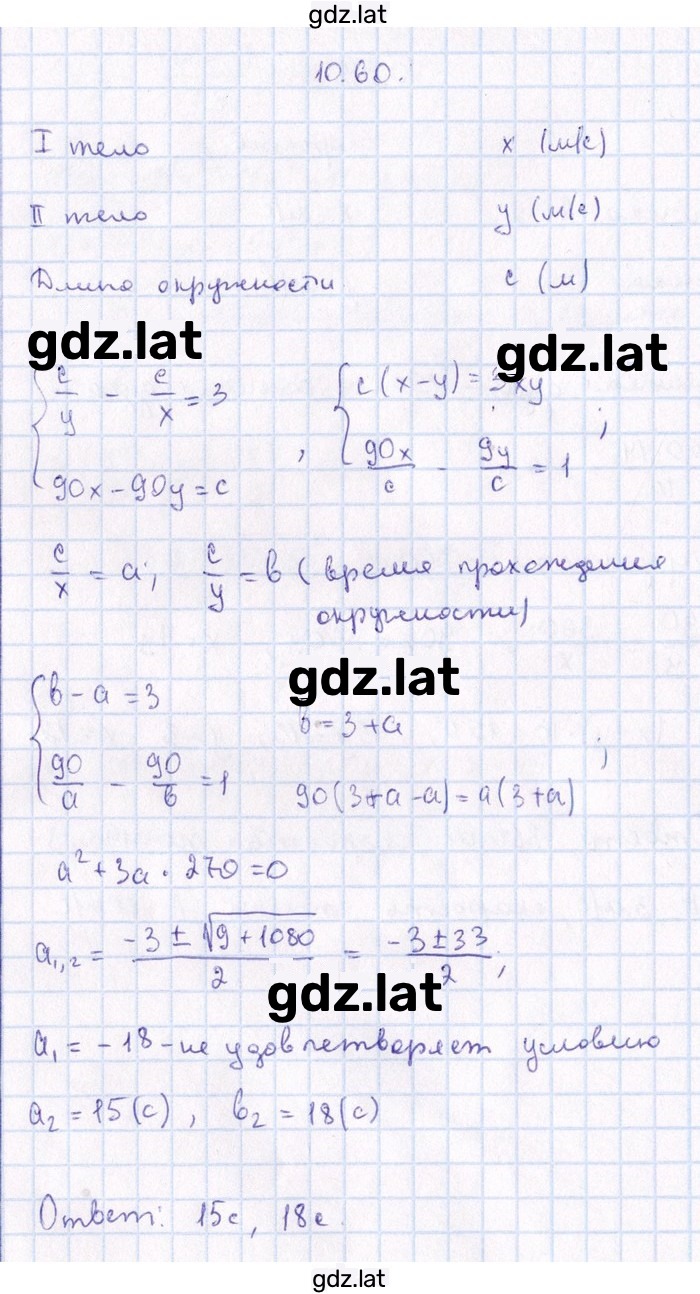 gdz.lat
10.60.
I тело x (м/с)
II тело y (м/с)
Длина окружности c (м)
gdz.lat
gdz.lat
c/y - c/x = 3 , c(x-y) = 3xy ;
90x - 90y = c 90x/c - 9y/c = 1
c/x = a; c/y = в (время прохождения
окружности)
gdz.lat
в - a = 3 в = 3 + a ;
90/a - 90/в = 1 90(3+a-a) = a(3+a)
a² + 3a · 270 = 0
a₁,₂ = (-3 ± √(9 + 1080))/2 = (-3 ± 33)/2 ;
gdz.lat
a₁ = -18 - не удовлетворяет условию
a₂ = 15(с) , в₂ = 18(с)
Ответ: 15с, 18с.
gdz.lat